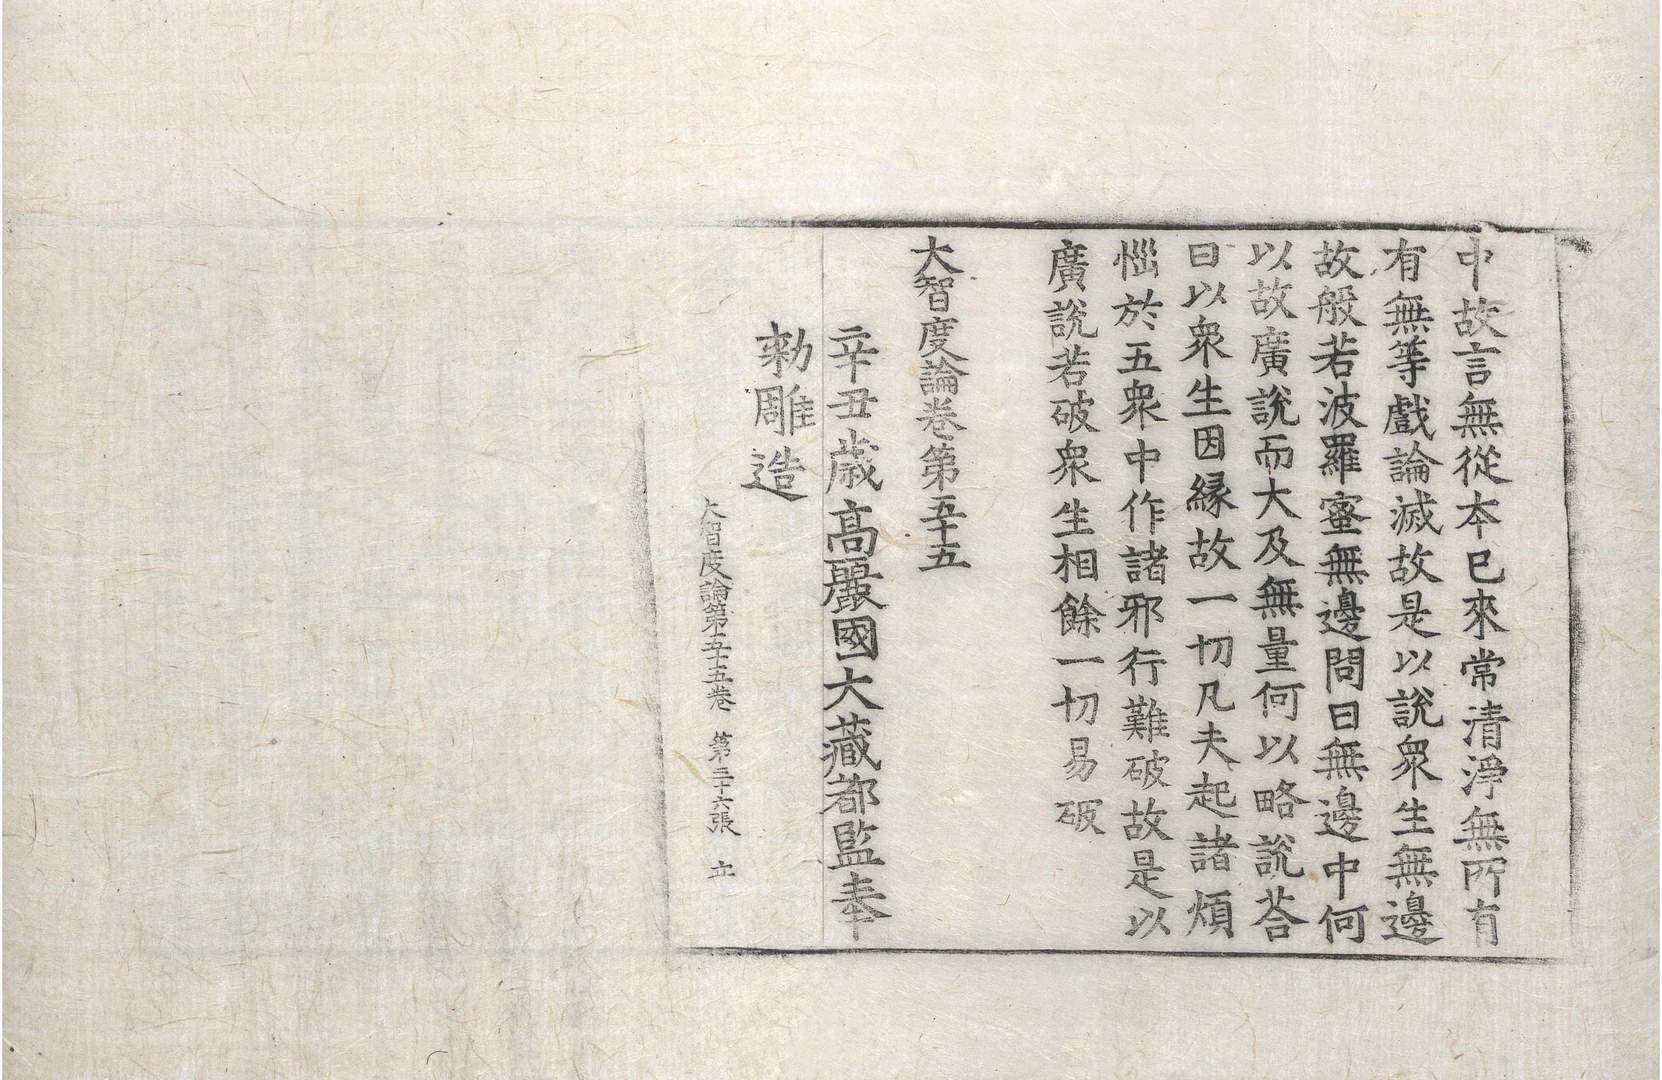 中故言無從本已來常清淨無所有
有無等戲論滅故是以說衆生無邊
故般若波羅蜜無邊問曰無邊中何
以故廣說而大及無量何以略說荅
曰以衆生因緣故一切凡夫起諸煩
惱於五衆中作諸邪行難破故是以
廣說若破衆生相餘一切易破
大智度論卷第五十五
辛丑歲高麗國大藏都監奉
勑雕造
大智度論第五十五卷 第三十六張 立